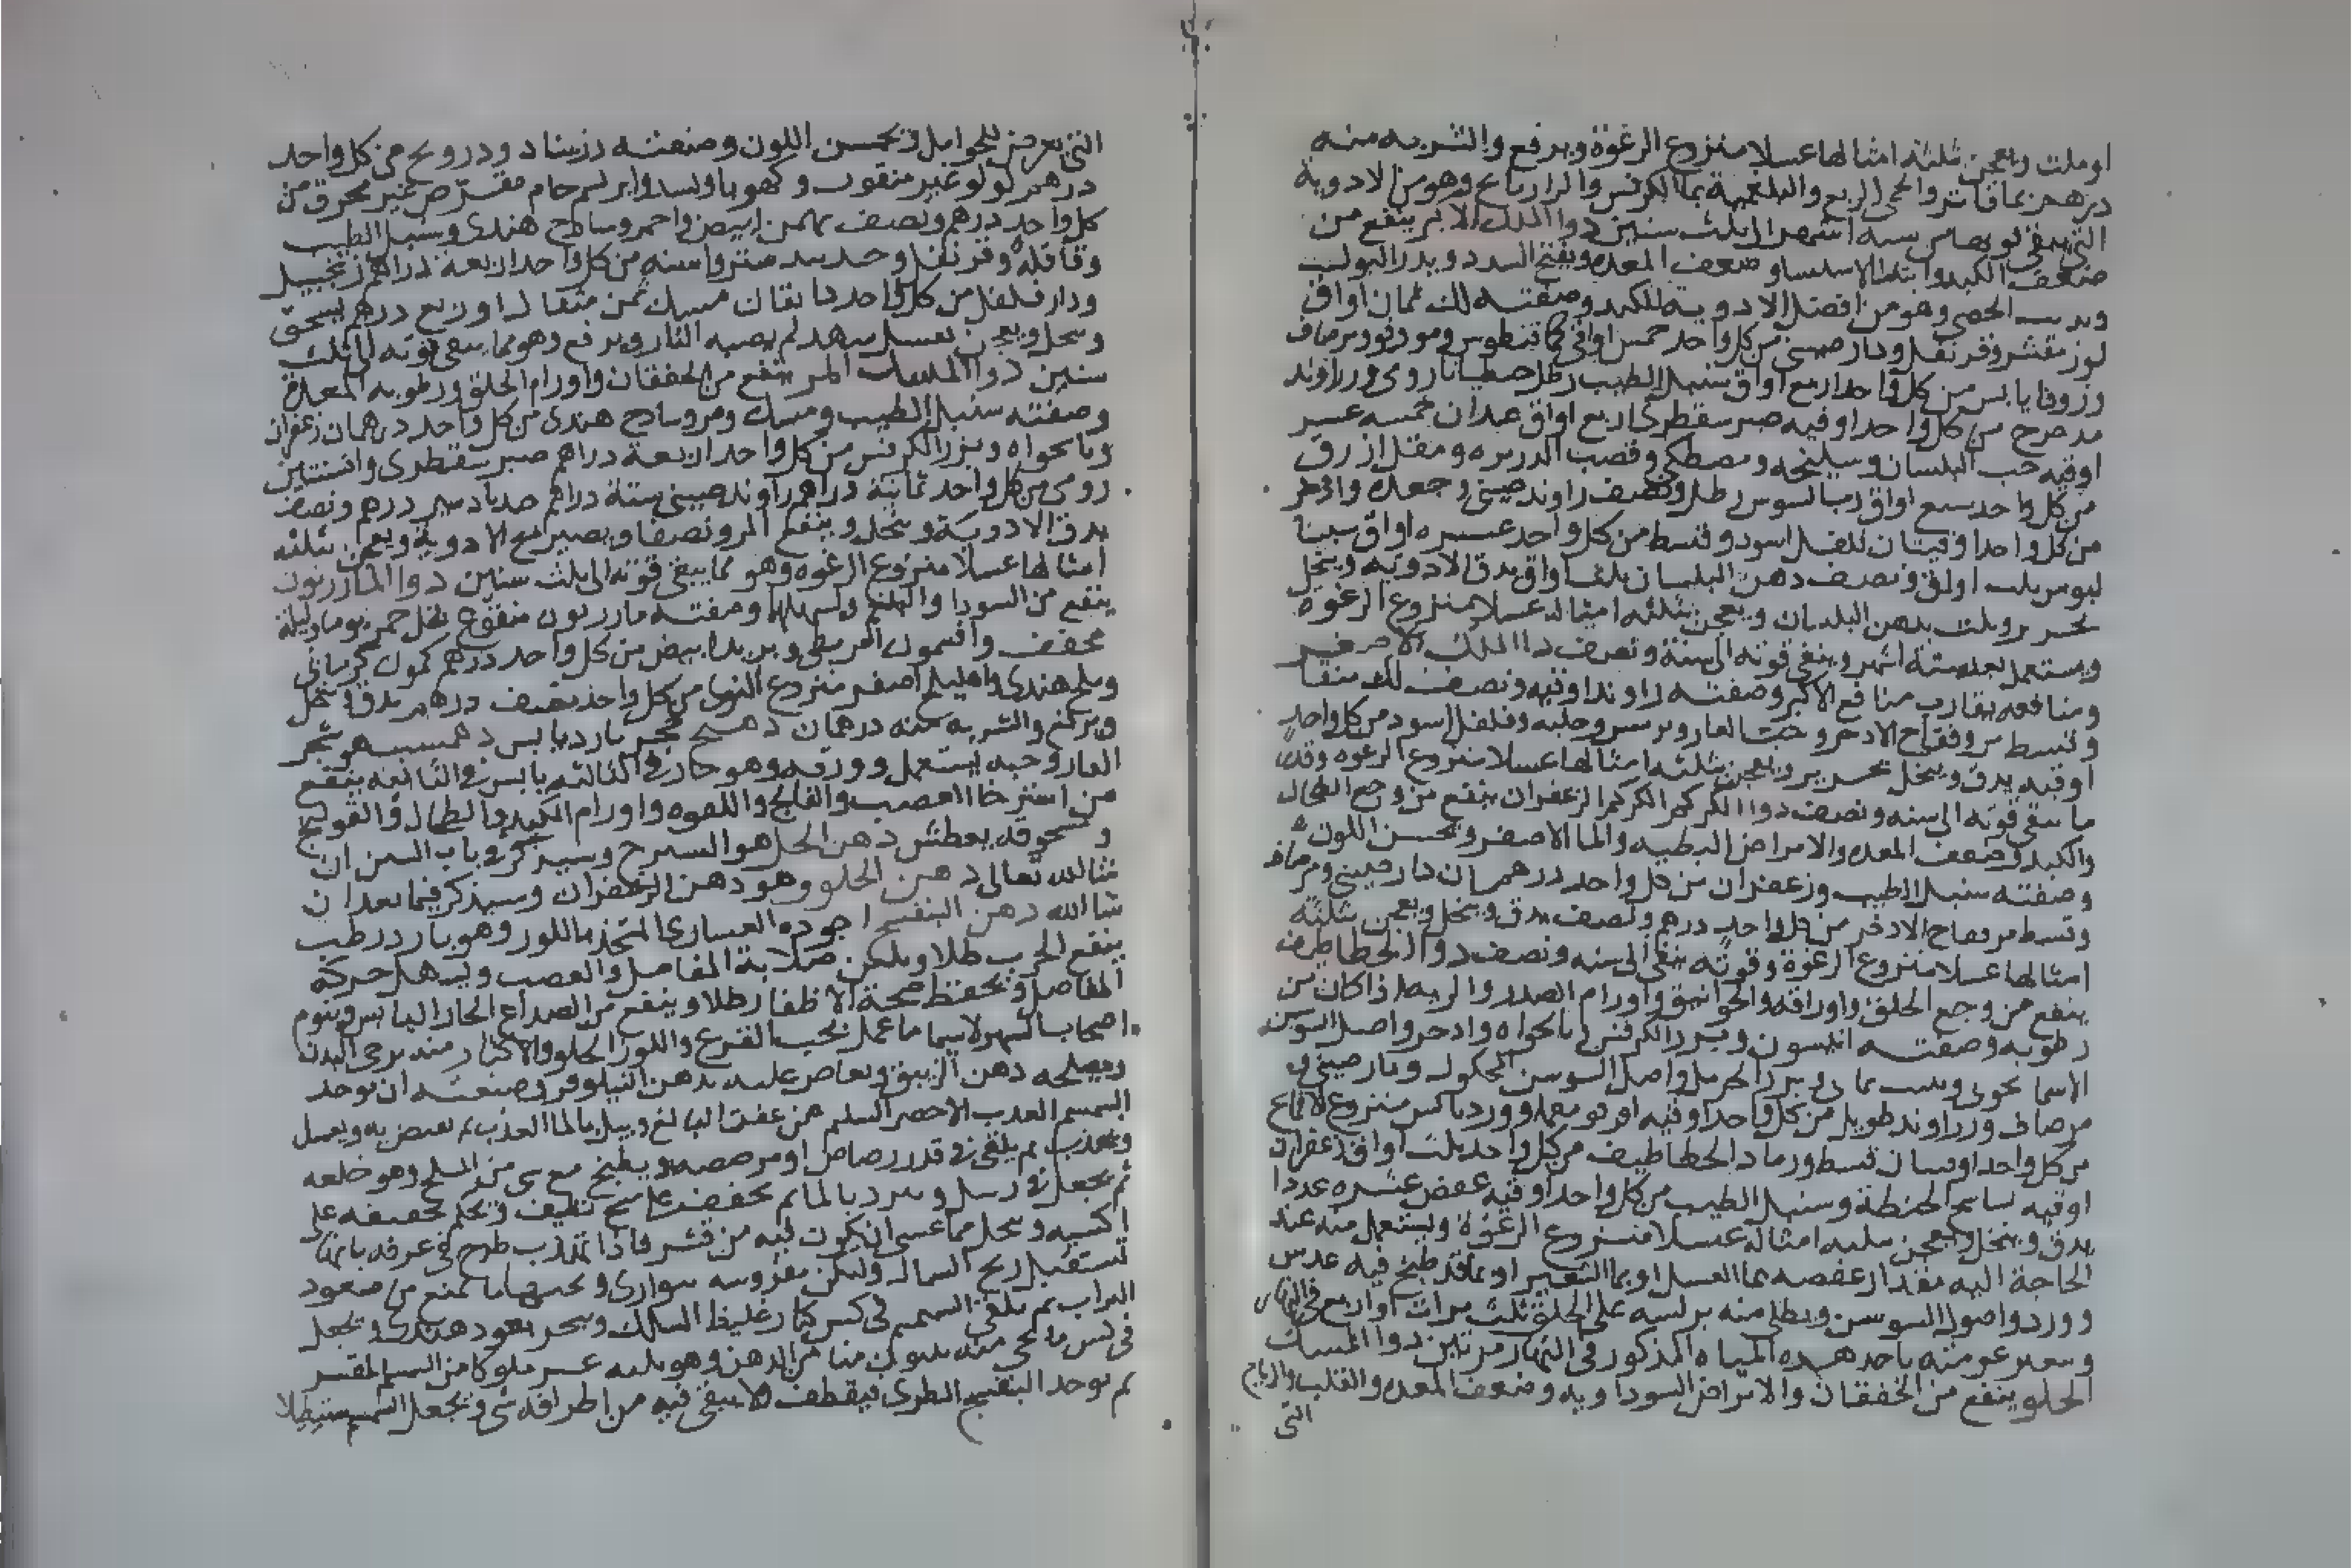 او ملت ويعجن بثلثة امثالها عسلا منزوع الرغوة ويرفع والشربه منه
درهم بماء فاتر والحمى الربع والبلغمية بما الكرفس والرازيانج وهو من الادوية
التي يبقى قوتها من ستة اشهر الى ثلث سنين دوا اللك الاكبر ينفع من
ضعف الكبد وابتدا الاستسقا وضعف المعده ويفتح السدد ويدر البول
الحصى وهو من افضل الادوية للكبد وصفته لك ثمان اواق
لوز مقشر وقرنفل ودار صيني من كل واحد خمس اواق كماقيطوس وفو ومو ومر صاف
وزوفا يابس من كل واحد اربع اواق سنبل الطيب رطل جنطيانا رومى وزراوند
مدحرج من كل واحد اوقيه صبر سقطرى اربع اواق عيدان خمسه عشر
اوقيه حب البلسان وسليخه ومصطكى وقصب الدريره ومقل ازرق
من كل واحد سبع اواق رب السوس رطل ونصف راوند صيني وجعده واذخر
من كل واحد اوقيتان فلفل اسود وقسط من كل واحد عشره اواق
ونصف دهن البلسان ثلث اواق يدق الادويه وينخل
بحرير ويلت بدهن البلسان ويعجن بثلثة امثاله عسلا منزوع الرغوة
ويستعمل بعد ستة اشهر وينقى قوته الى سنة ونصف دوا اللك الاصغر
ومنافعه يقارب منافع الاكبر وصفته راوند اوقيه ونصف لك منقا
وقسط مر وفقاح الاذخر وحب الغار وترمس وحلبه وفلفل اسود من كل واحد
اوقيه يدق وينخل بحرير ويعجن بثلثة امثالها عسلا منزوع الرغوه وقدر
ما تبقى قوته الى سنه ونصف دوا الكركم الكركم الزعفران ينفع من وجع الطحال
والكبد وضعف المعده والامراض البطيه والما الاصفر ويحسن اللون
وصفته سنبل الطيب وزعفران من كل واحد درهمان دار صيني ومر صاف
وقسط مر وفقاح الاذخر من كل واحد درهم ونصف يدق وينخل ويعجن بثلثة
امثالها عسلا منزوع الرغوة وقوته تبقى الى سنه ونصف دوا الخطاطيف
ينفع من وجع الحلق واورامه والخوانيق واورام الصدر والريه اذا كان من
رطوبه وصفته انيسون وبزر الكرفس نانخواه واذخر واصل السوسن
الاسمانجونى وبزر الحرمل واصل السوسن المحكوك ودار صيني و
مر صاف وزراوند طويل من كل واحد اوقيه ورد يابس منزوع الاقماع
من كل واحد اوقيتان قسط ورماد الخطاطيف من كل واحد ثلث اواق زعفران
اوقيه الحنطة وسنبل الطيب من كل واحد اوقيه عفص عشره عددا
يدق وينخل ويعجن بثلثه امثاله عسلا منزوع الرغوة ويستعمل منه عند
الحاجة اليه مقدار عفصه بما العسل او بما الشعير او بما قد طبخ فيه عدس
وورد واصول السوسن ويطلى منه بريشه على الحلق ثلث مرات او اربع في النهار
ويتغرغر منه باحد هذه المياه المذكور فى النهار مرتين دوا المسك
الحلو ينفع من الخفقان والامراض السوداويه وضعف المعده والقلب والرياح
التى
التى تعرض للحوامل ويحسن اللون وصنعته زرنباد ودرونج من كل واحد
درهم لولو غير مثقوب وكهربا وبسد وابريسم خام مقرض غير محرق من
كل واحد درهم ونصف بهمن ابيض واحمر وساذج هندى وسنبل الطيب
وقاقله وقرنفل وجند بيدستر واشنه من كل واحد اربعة دراهم زنجبيل
ودار فلفل من كل واحد دانقان مسك ثمن مثقال او ربع درهم يسحق
وينخل ويعجن بعسل شهد لم يصبه النار ويرفع وهو مما يبقى قوته الى ثلث
سنين دوا المسك المر ينفع من الخفقان واورام الحلق ورطوبه المعدة
وصفته سنبل الطيب ومسك ومر وساذج هندى من كل واحد درهمان زعفران
ونانخواه وبزر الكرفس من كل واحد اربعة دراهم صبر سقطرى وافسنتين
رومى من كل واحد ثمانية دراهم راوند صيني ستة دراهم جندبادستر درهم ونصف
يدق الادوية وينخل وينقع المر ونصفا ويصير مع الادوية ويعجن بثلثه
امثالها عسلا منزوع الرغوه وهو مما يبقى قوته الى ثلث سنين دوا المازريون
ينفع من السودا والبلغم ويسهلها وصفته مازريون منقوع بخل خمر يوما وليلة
مجفف وافتيمون اقريطى وتربد ابيض من كل واحد درهم كمون كرمانى
وملح هندى واهليلج اصفر منزوع النوى من كل واحد نصف درهم يدق وينخل
ويرفع والشربه منه درهمان دهنج حجر بارد يابس دهمست هو شجر
الغار وحبه يستعمل وورقه وهو حار فى الثالثه يابس فى الثانيه ينفع
من استرخا العصب والفالج واللقوه واورام الكبد والطحال والقولنج
ومسحوقه يعطس دهن الحل هو السيرج وسيذكر فى باب السين ان
شا الله تعالى دهن الخلو وهو دهن الزعفران وسيذكر فيما بعد ان
شا الله دهن البنفسج اجوده العسارى المتخذ باللوز وهو بارد رطب
ينفع الجرب طلا ويلين صلابة المفاصل والعصب ويسهل حركة
المفاصل ويحفظ صحة الاظفار طلا وينفع من الصداع الحار اليابس وينوم
اصحاب السهر لا سيما ما عمل بحب القرع واللوز الحلو والاكثار منه يرخى البدن
ويصلحه دهن الزيبق ويعاض عليه بدهن النيلوفر وصنعته ان يوخذ
السمسم العذب الاخضر السليم من عفن البالغ ويبل بالما العذب ثم به ويغسل
ثم يلقى فى قدر رصاص او مرصصه ويطبخ مع شى من الملح وهو خلعه
ثم يجعل فى ويبرد بالما ثم يجفف على مسح نظيف تجفيفه على
اكسيه وينخل مما عسى ان يكون فيه من قشر فاذا طرح فى غرفه بابها
تستقبل ريح الشمال ولتكن مفروشه سوارى ما تمنع من صعود
التراب ثم يلقى السمسم فى كيس كتان غليظ السلك ويبخر بعود هندى ويجعل
فى كيس من الدهن وهو ثلثه عشر مكوكا من السمسم المقشر
ثم يوخذ البنفسج الطرى فيقطف لا يبقى فيه من اطرافه شى ويجعل السمسم